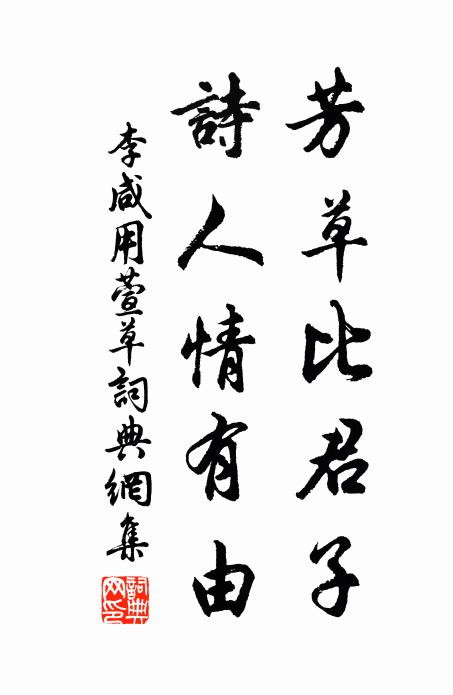 芳草比君子
詩人情有由
李咸用萱草詞典網集
詞典网印